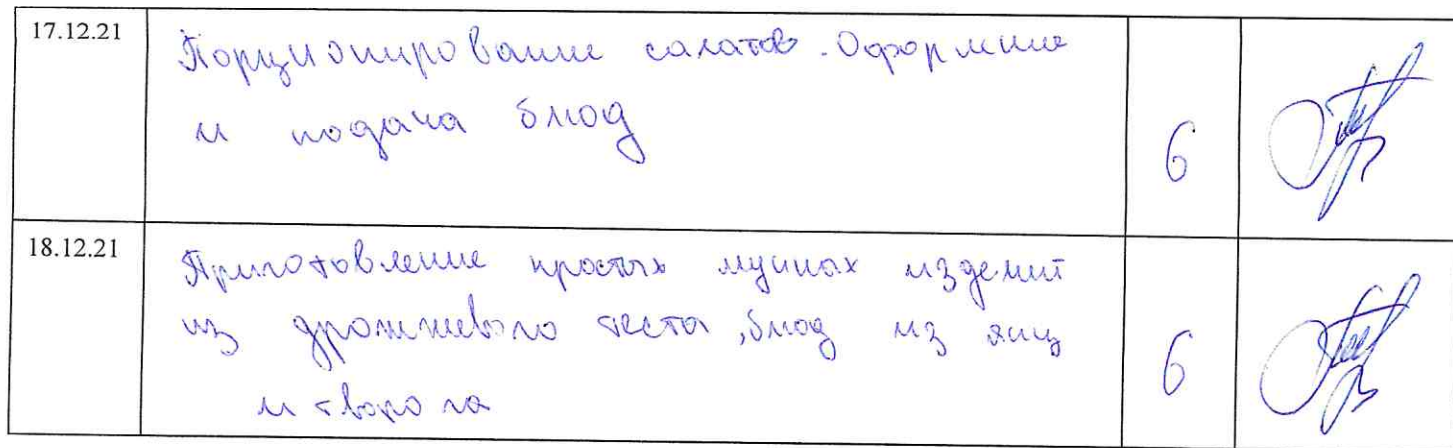 17.12.21
Порционирование салатов. Оформление
и подача блюд
6
18.12.21
Приготовление простых мучных изделий
из дрожжевого теста, блюд из яиц
и творога
6